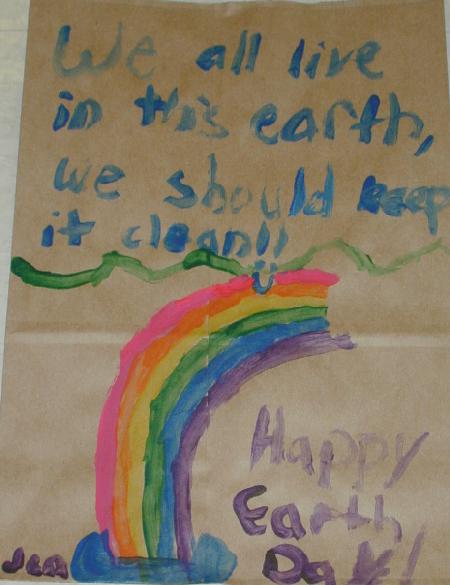 We all live
in this earth,
we should keep
it clean!!
Happy
Earth
Day!
Jen